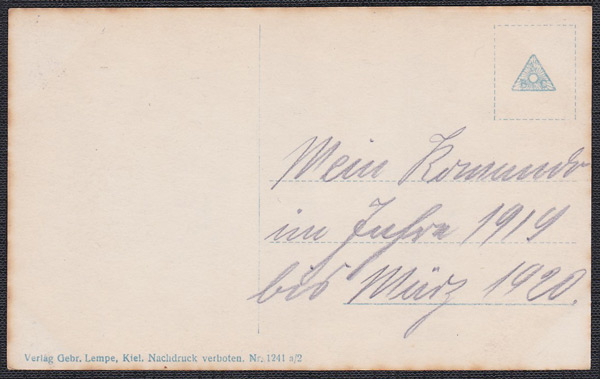 Mein Komando
im Jahre 1919
bis März 1920.
Verlag Gebr. Lempe, Kiel. Nachdruck verboten. Nr. 1241 a/2